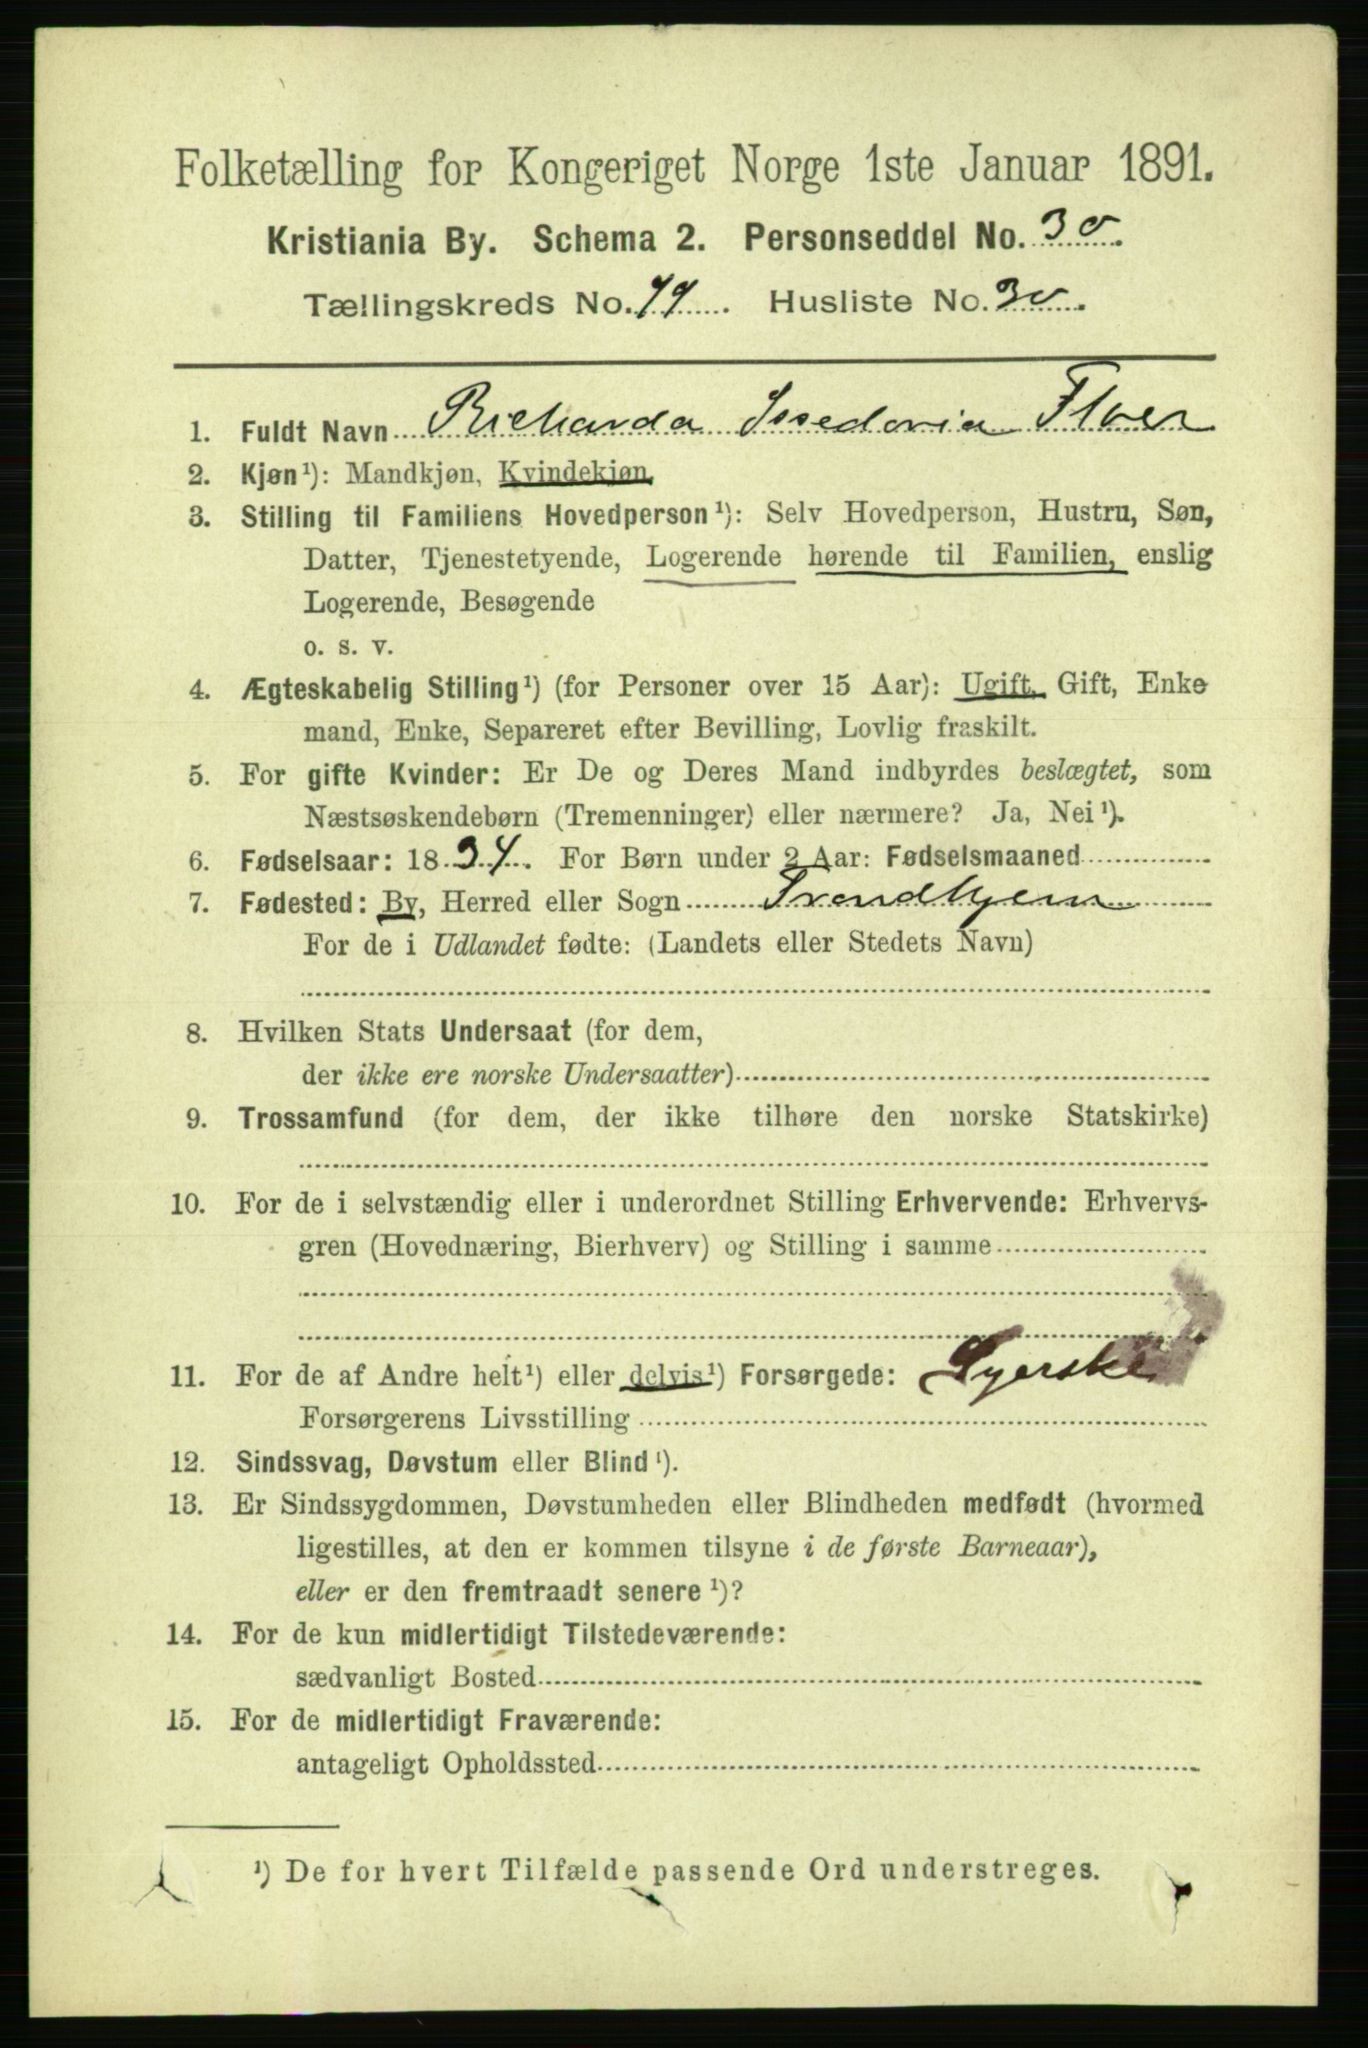 Folketælling for Kongeriget Norge 1ste Januar 1891.
Kristiania By. Schema 2. Personseddel No. 30.
Tællingskreds No. 79. Husliste No. 30.
1. Fuldt Navn Richarda Issedoria Floer
2. Kjøn¹): Mandkjøn, Kvindekjøn.
3. Stilling til Familiens Hovedperson¹): Selv Hovedperson, Hustru, Søn,
Datter, Tjenestetyende, Logerende hørende til Familien, enslig
Logerende, Besøgende
o. s. v.
4. Ægteskabelig Stilling¹) (for Personer over 15 Aar): Ugift, Gift, Enke
mand, Enke, Separeret efter Bevilling, Lovlig fraskilt.
5. For gifte Kvinder: Er De og Deres Mand indbyrdes beslægtet, som
Næstsøskendebørn (Tremenninger) eller nærmere? Ja, Nei¹).
6. Fødselsaar: 1834. For Børn under 2 Aar: Fødselsmaaned
7. Fødested: By, Herred eller Sogn Trondhjem
For de i Udlandet fødte: (Landets eller Stedets Navn)
8. Hvilken Stats Undersaat (for dem,
der ikke ere norske Undersaatter)
9. Trossamfund (for dem, der ikke tilhøre den norske Statskirke)
10. For de i selvstændig eller i underordnet Stilling Erhvervende: Erhvervs-
gren (Hovednæring, Bierhverv) og Stilling i samme
11. For de af Andre helt¹) eller delvis¹) Forsørgede: Syerske
Forsørgerens Livsstilling
12. Sindssvag, Døvstum eller Blind¹).
13. Er Sindssygdommen, Døvstumheden eller Blindheden medfødt (hvormed
ligestilles, at den er kommen tilsyne i de første Barneaar),
eller er den fremtraadt senere¹)?
14. For de kun midlertidigt Tilstedeværende:
sædvanligt Bosted
15. For de midlertidigt Fraværende:
antageligt Opholdssted
¹) De for hvert Tilfælde passende Ord understreges.